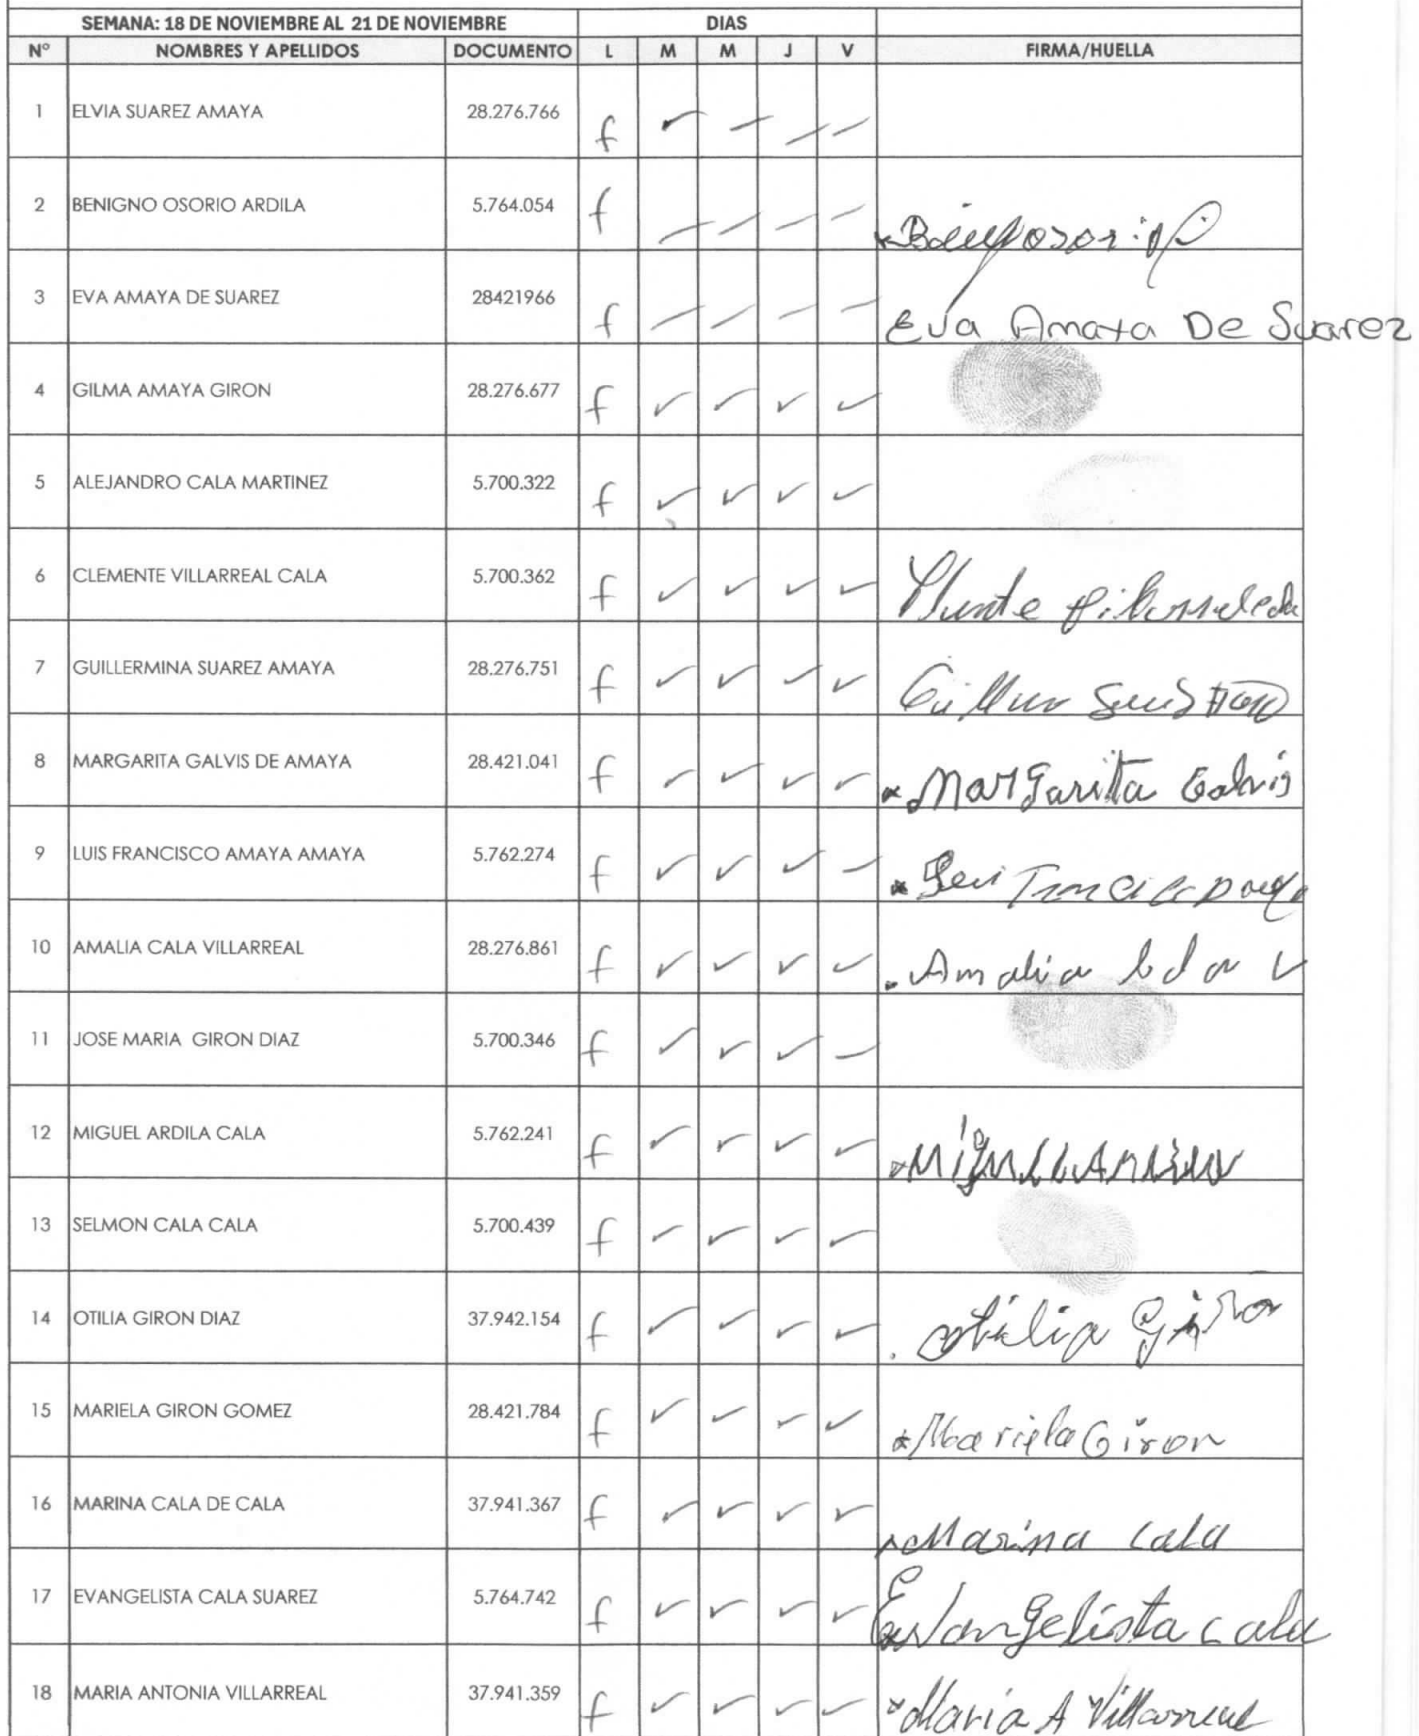 SEMANA: 18 DE NOVIEMBRE AL 21 DE NOVIEMBRE DIAS
N° NOMBRES Y APELLIDOS DOCUMENTO L M M J V FIRMA/HUELLA
1 ELVIA SUAREZ AMAYA 28.276.766 f ✓ – – –
2 BENIGNO OSORIO ARDILA 5.764.054 f – – – –
3 EVA AMAYA DE SUAREZ 28421966 f – – – – Eva Amaya De Suarez
4 GILMA AMAYA GIRON 28.276.677 f ✓ ✓ ✓ ✓
5 ALEJANDRO CALA MARTINEZ 5.700.322 f ✓ ✓ ✓ ✓
6 CLEMENTE VILLARREAL CALA 5.700.362 f ✓ ✓ ✓ ✓
7 GUILLERMINA SUAREZ AMAYA 28.276.751 f ✓ ✓ ✓ ✓
8 MARGARITA GALVIS DE AMAYA 28.421.041 f ✓ ✓ ✓ ✓ Margarita Galvis
9 LUIS FRANCISCO AMAYA AMAYA 5.762.274 f ✓ ✓ ✓ –
10 AMALIA CALA VILLARREAL 28.276.861 f ✓ ✓ ✓ ✓ Amalia V
11 JOSE MARIA GIRON DIAZ 5.700.346 f ✓ ✓ ✓ –
12 MIGUEL ARDILA CALA 5.762.241 f ✓ ✓ ✓ ✓
13 SELMON CALA CALA 5.700.439 f ✓ ✓ ✓ ✓
14 OTILIA GIRON DIAZ 37.942.154 f ✓ ✓ ✓ ✓ Otilia Giron
15 MARIELA GIRON GOMEZ 28.421.784 f ✓ ✓ ✓ ✓ Mariela Giron
16 MARINA CALA DE CALA 37.941.367 f ✓ ✓ ✓ ✓ Marina Cala
17 EVANGELISTA CALA SUAREZ 5.764.742 f ✓ ✓ ✓ ✓ Evangelista Cala
18 MARIA ANTONIA VILLARREAL 37.941.359 f ✓ ✓ ✓ ✓ Maria A Villarreal